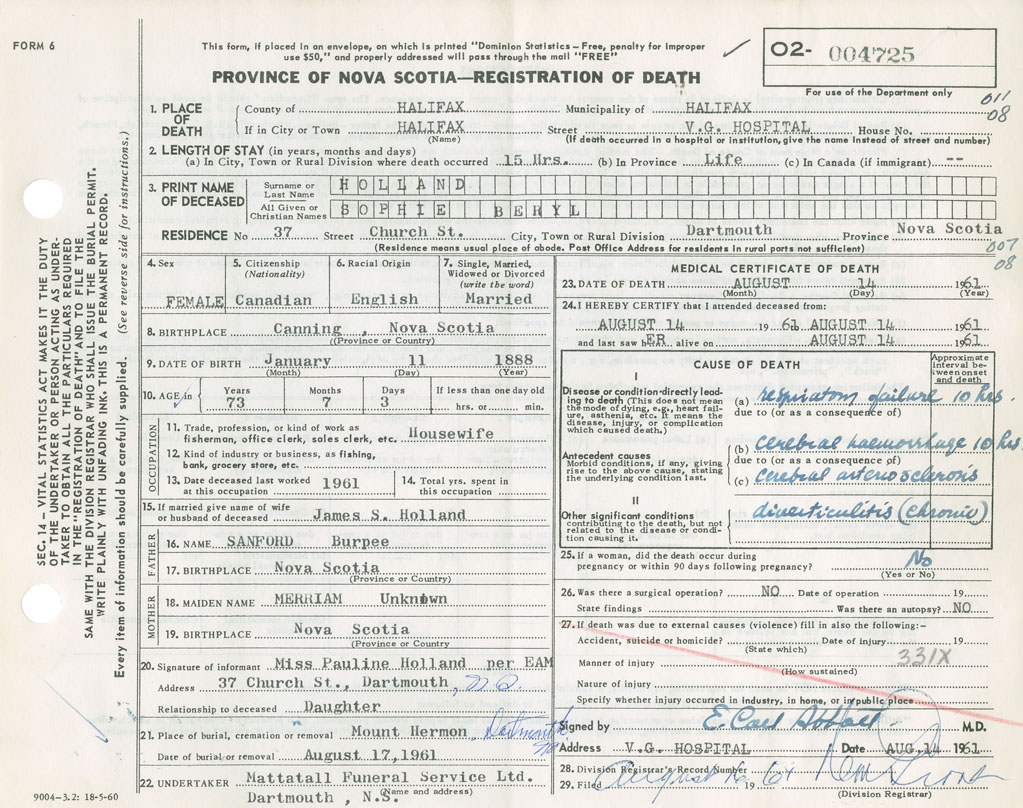 FORM 6
This form, if placed in an envelope, on which is printed "Dominion Statistics – Free, penalty for improper
use $50," and properly addressed will pass through the mail "FREE"
PROVINCE OF NOVA SCOTIA—REGISTRATION OF DEATH
02- 004725
For use of the Department only
011
08
1. PLACE OF DEATH
County of HALIFAX Municipality of HALIFAX
If in City or Town HALIFAX Street V.G. HOSPITAL House No.
(Name) (If death occurred in a hospital or institution, give the name instead of street and number)
2. LENGTH OF STAY (in years, months and days)
(a) In City, Town or Rural Division where death occurred 15 Hrs. (b) In Province Life (c) In Canada (if immigrant) --
3. PRINT NAME OF DECEASED
Surname or Last Name HOLLAND
All Given or Christian Names SOPHIE BERYL
RESIDENCE No 37 Street Church St. City, Town or Rural Division Dartmouth Province Nova Scotia
(Residence means usual place of abode. Post Office Address for residents in rural parts not sufficient)
007
08
4. Sex FEMALE
5. Citizenship (Nationality) Canadian
6. Racial Origin English
7. Single, Married, Widowed or Divorced (write the word) Married
8. BIRTHPLACE Canning , Nova Scotia
(Province or Country)
9. DATE OF BIRTH January 11 1888
(Month) (Day) (Year)
10. AGE in Years 73 Months 7 Days 3 If less than one day old hrs. or min.
OCCUPATION
11. Trade, profession, or kind of work as fisherman, office clerk, sales clerk, etc. Housewife
12. Kind of industry or business, as fishing, bank, grocery store, etc.
13. Date deceased last worked at this occupation 1961
14. Total yrs. spent in this occupation
15. If married give name of wife or husband of deceased James S. Holland
FATHER
16. NAME SANFORD Burpee
17. BIRTHPLACE Nova Scotia
(Province or Country)
MOTHER
18. MAIDEN NAME MERRIAM Unknown
19. BIRTHPLACE Nova Scotia
(Province or Country)
20. Signature of informant Miss Pauline Holland per EAM
Address 37 Church St., Dartmouth, N.S.
Relationship to deceased Daughter
21. Place of burial, cremation or removal Mount Hermon, Dartmouth
Date of burial or removal August 17,1961
22. UNDERTAKER Mattatall Funeral Service Ltd.
(Name and address)
Dartmouth , N.S.
9004-3.2: 18-5-60
MEDICAL CERTIFICATE OF DEATH
23. DATE OF DEATH AUGUST 14 1961
(Month) (Day) (Year)
24. I HEREBY CERTIFY that I attended deceased from:
AUGUST 14 1961 AUGUST 14 1961
and last saw hER alive on AUGUST 14 1961
CAUSE OF DEATH
Approximate interval between onset and death
I
Disease or condition directly leading to death (This does not mean the mode of dying, e.g., heart failure, asthenia, etc. It means the disease, injury, or complication which caused death.)
(a) respiratory failure 10 hrs.
due to (or as a consequence of)
Antecedent causes
Morbid conditions, if any, giving rise to the above cause, stating the underlying condition last.
(b) cerebral haemorrhage 10 hrs
due to (or as a consequence of)
(c) cerebral arteriosclerosis
II
Other significant conditions contributing to the death, but not related to the disease or condition causing it.
diverticulitis (chronic)
25. If a woman, did the death occur during pregnancy or within 90 days following pregnancy? No
(Yes or No)
26. Was there a surgical operation? NO Date of operation 19
State findings Was there an autopsy? NO
27. If death was due to external causes (violence) fill in also the following:-
Accident, suicide or homicide? Date of injury 19
(State which)
331X
Manner of injury
(How sustained)
Nature of injury
Specify whether injury occurred in industry, in home, or in public place
Signed by E. Carl Abbott M.D.
Address V.G. HOSPITAL Date AUG.14 1961
28. Division Registrar's Record Number
29. Filed August 16 1961
(Division Registrar)
SEC. 14 – VITAL STATISTICS ACT MAKES IT THE DUTY
OF THE UNDERTAKER OR PERSON ACTING AS UNDER-
TAKER TO OBTAIN ALL THE PARTICULARS REQUIRED
IN THE "REGISTRATION OF DEATH" AND TO FILE THE
SAME WITH THE DIVISION REGISTRAR WHO SHALL ISSUE THE BURIAL PERMIT.
WRITE PLAINLY WITH UNFADING INK. THIS IS A PERMANENT RECORD.
Every item of information should be carefully supplied. (See reverse side for instructions.)